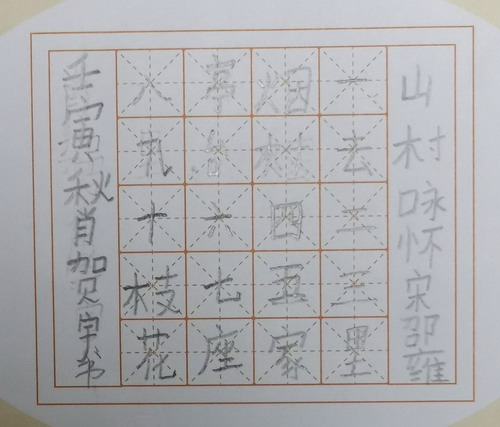 山村咏怀宋邵雍
一去二三里
烟村四五家
亭台六七座
八九十枝花
壬寅秋肖贺宇书